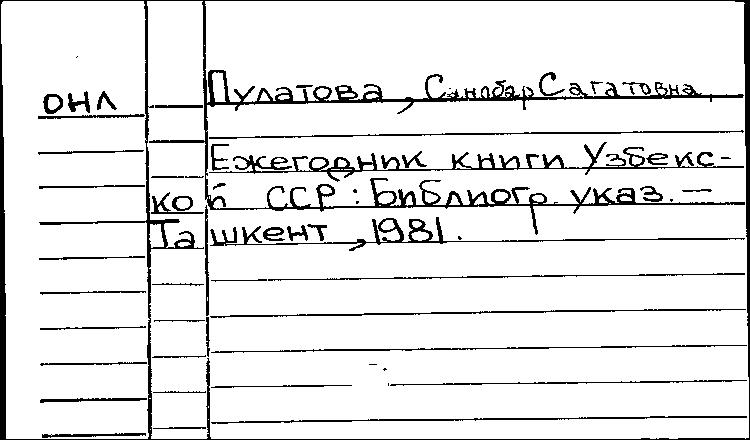 ОНЛ
Пулатова, Санобар Сагатовна.
Ежегодник книги Узбекс-
кой ССР: Библиогр. указ. —
Ташкент, 1981.